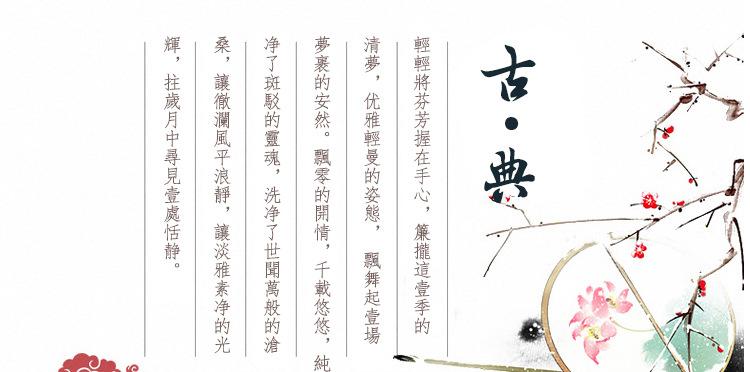 古·典
輕輕將芬芳握在手心，簾攏這壹季的
清夢，优雅輕曼的姿態，飄舞起壹場
夢裏的安然。飄零的開情，千載悠悠，純
净了斑駁的靈魂，洗净了世間萬般的滄
桑，讓徹瀾風平浪靜，讓淡雅素净的光
輝，拄歲月中尋見壹處恬静。